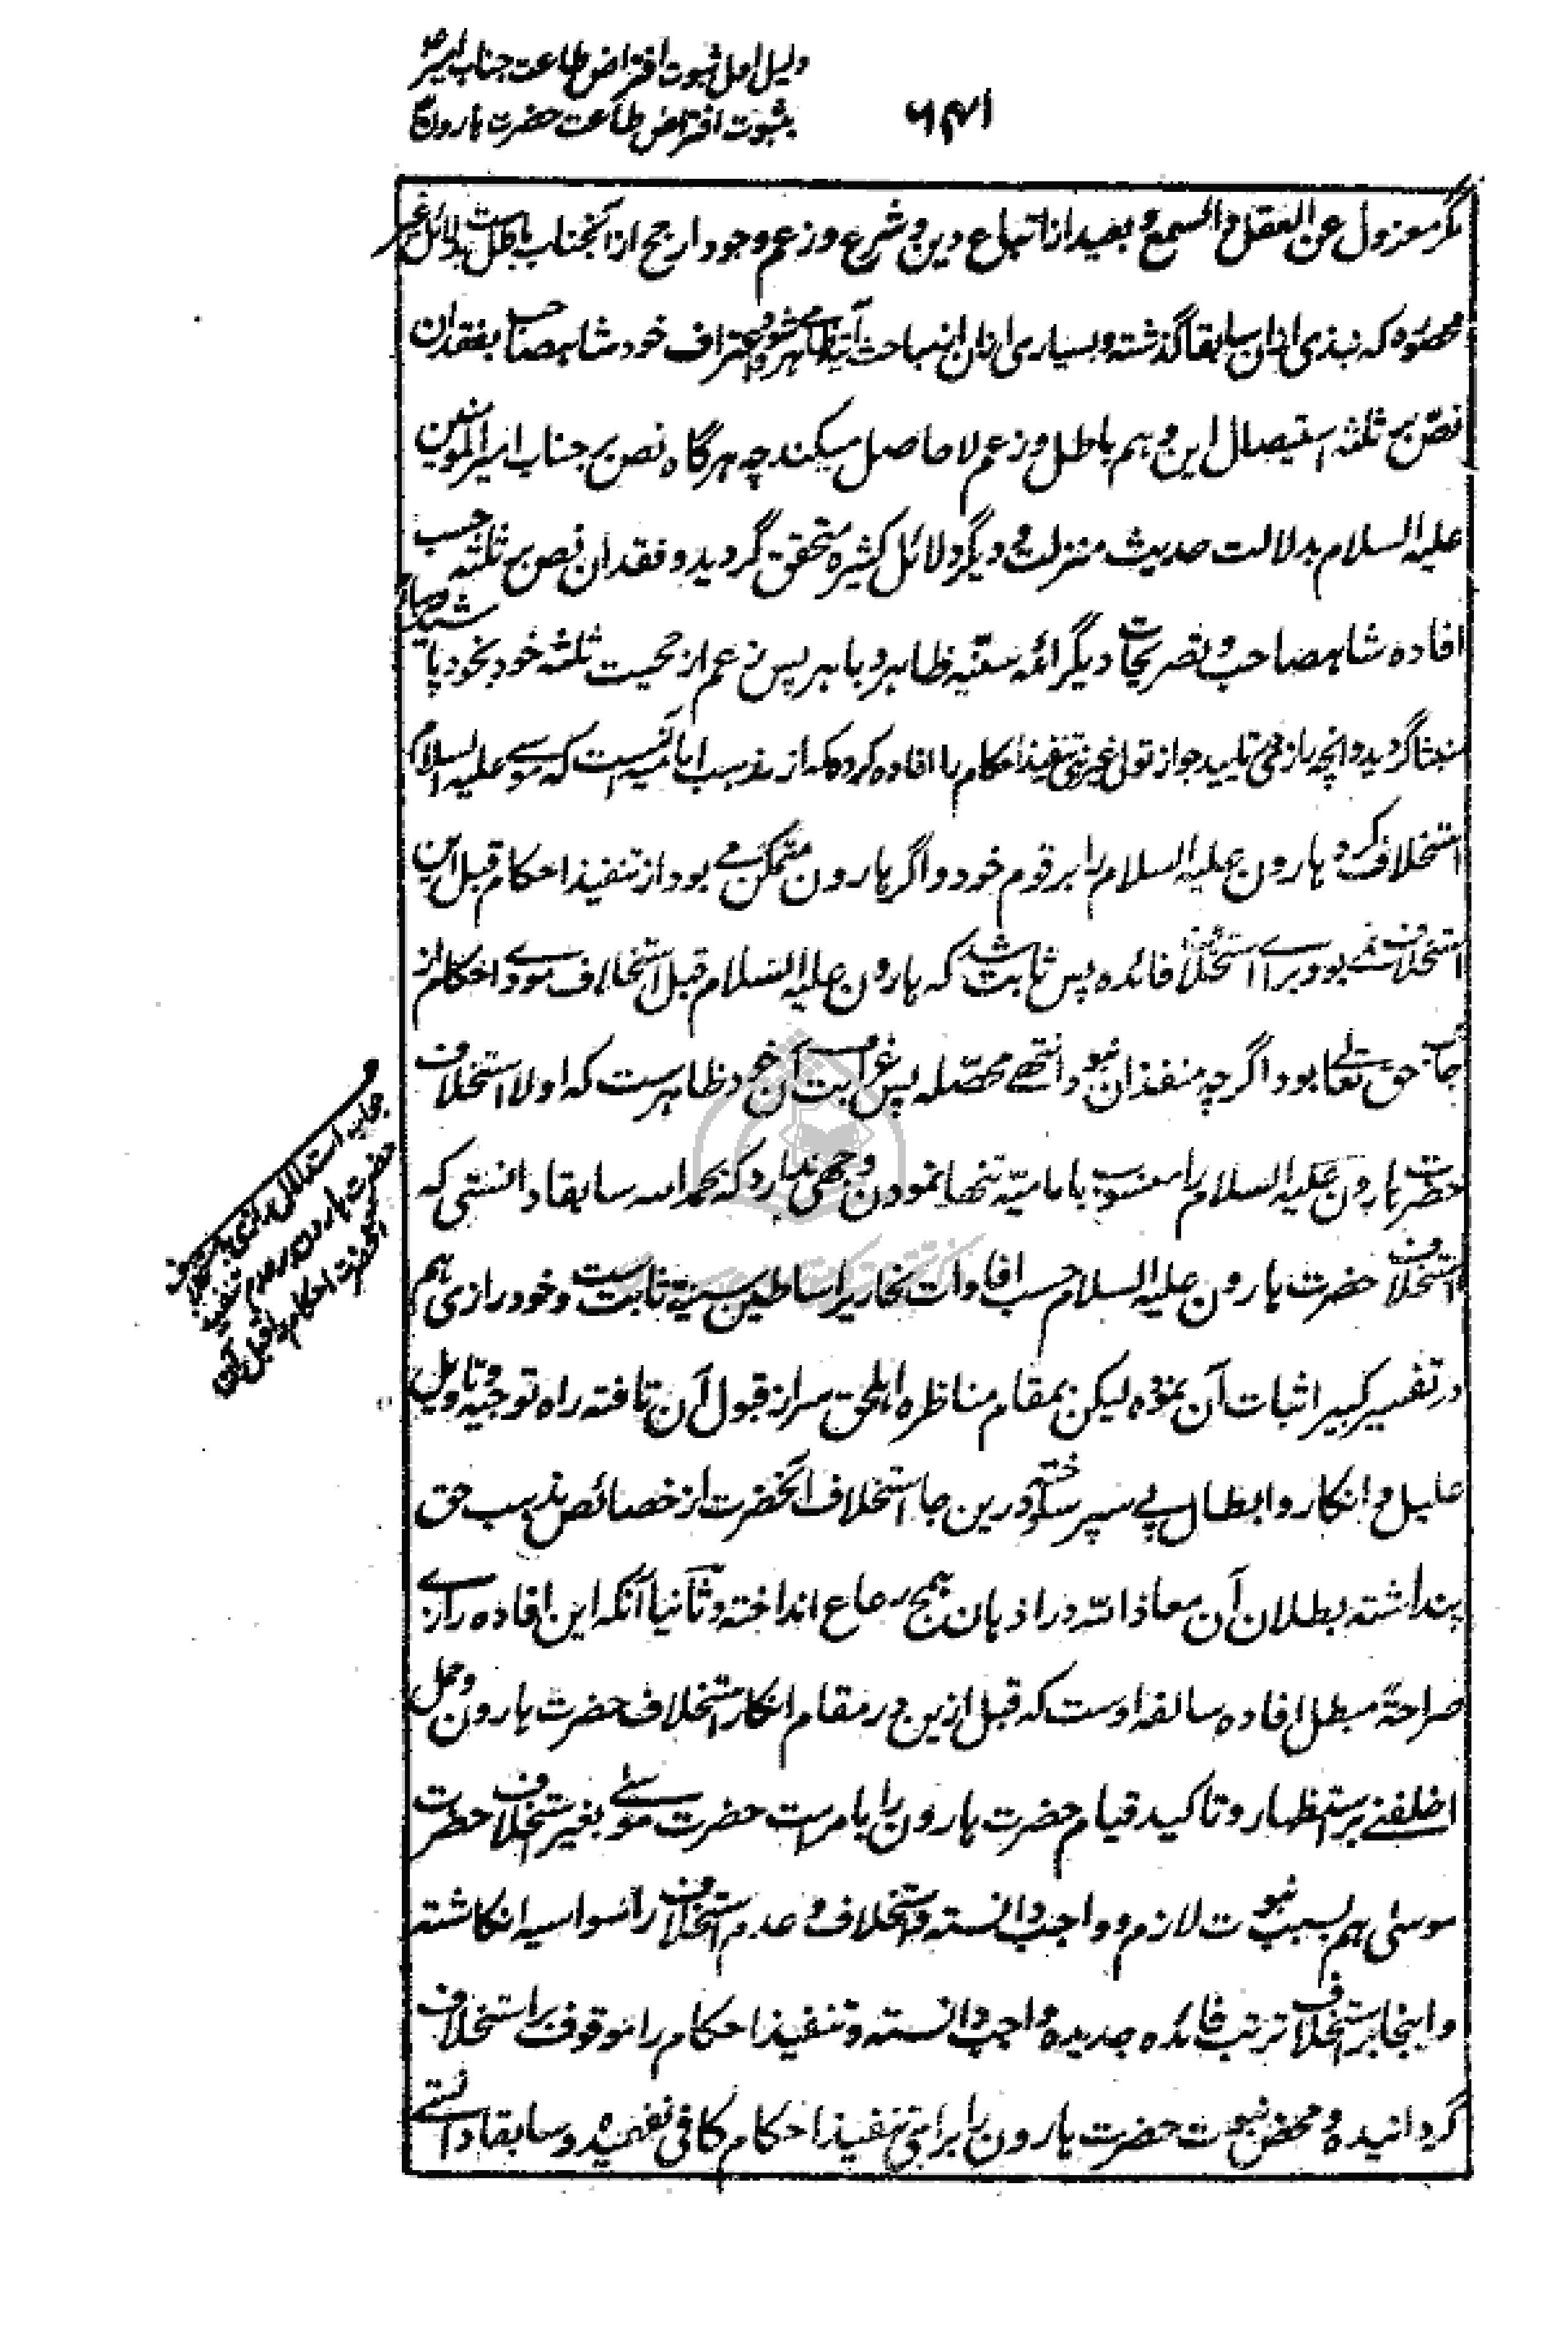 دلیل اول ثبوت افتراض طاعت جناب امیرؑ
بثبوت افتراض طاعت حضرت هارونؑ
۶۴۱
مگر معزول عن العقل و السمع و بعید از اتباع دین و شرع و زعم وجود ارجح از آنجناب باطلست بدلائل غیر
محصوره که نبذی ازان سابقا گذشته و بسیاری ازان از مباحث آتیه ظاهر میشود و اعتراف خود شاهصاحب بفقدان
نصّ بر ثلثه استیصال این وهم باطل و زعم لا حاصل میکند چه هرگاه نص بر جناب امیر المومنین
علیه السلام بدلالت حدیث منزلت و دیگر دلائل کثیره متحقق گردید و فقدان نص بر ثلثه حسب
افاده شاهصاحب و تصریحات دیگر ائمه سنّیه ظاهر و باهر پس زعم ارجحیت ثلثه خود بخود پاشیده هباءً
منبثا گردید و انچه رازی تایید جواز تولی غیر نبی تنفیذ احکام را افاده کرده که از مذهب امامیه است که موسے علیه السلام
استخلاف کرد هارون علیه السلام را بر قوم خود و اگر هارون متمکن مے بود از تنفیذ احکام قبل این
استخلاف نمے بود برای استخلاف فائده پس ثابت شد که هارون علیه السلام قبل استخلاف مودے احکام از
جانب حق تعالے بود اگرچه منفذ ان نبود انتهے محصّله پس غرابت آن خود ظاهرست که اولا استخلاف
حضرت هارون علیه السلام را منسوب بامامیّه تنها نمودن وجهی ندارد که بحمد الله سابقا دانستی که
استخلاف حضرت هارون علیه السلام حسب افادات نحاریر اساطین سنیة ثابت ست و خود رازی هم
در تفسیر کبیر اثبات آن نموده لیکن بمقام مناظره اهلحق سر از قبول آن تافته راه توجیه و تاویل
علیل و انکار و ابطال پے سپر ساخته و درین جا استخلاف آنحضرت از خصائص مذهب حق
پنداشته بطلان آن معاذ الله در اذهان همج رعاع انداخته و ثانیاً آنکه این افاده رازے
صراحةً مبطل افاده سالفه اوست که قبل ازین در مقام انکار استخلاف حضرت هارون و حمل
اخلفنے بر استظهار و تاکید قیام حضرت هارون را بامر امت حضرت موسے بغیر استخلاف حضرت
موسی هم بسبب نبوت لازم و واجب دانسته و استخلاف و عدم استخلاف را سواسیه انکاشته
و اینجا بر استخلاف ترتب فائده جدیده واجب دانسته و تنفیذ احکام را موقوف بر استخلاف
گردانیده و محض نبوت حضرت هارون را برای تنفیذ احکام کافی نفهمیده و سابقا دانستے
جواب استدلال رازی باستخلاف
حضرت هارون بر عدم تنفیذ
آنحضرت احکام را قبل آن